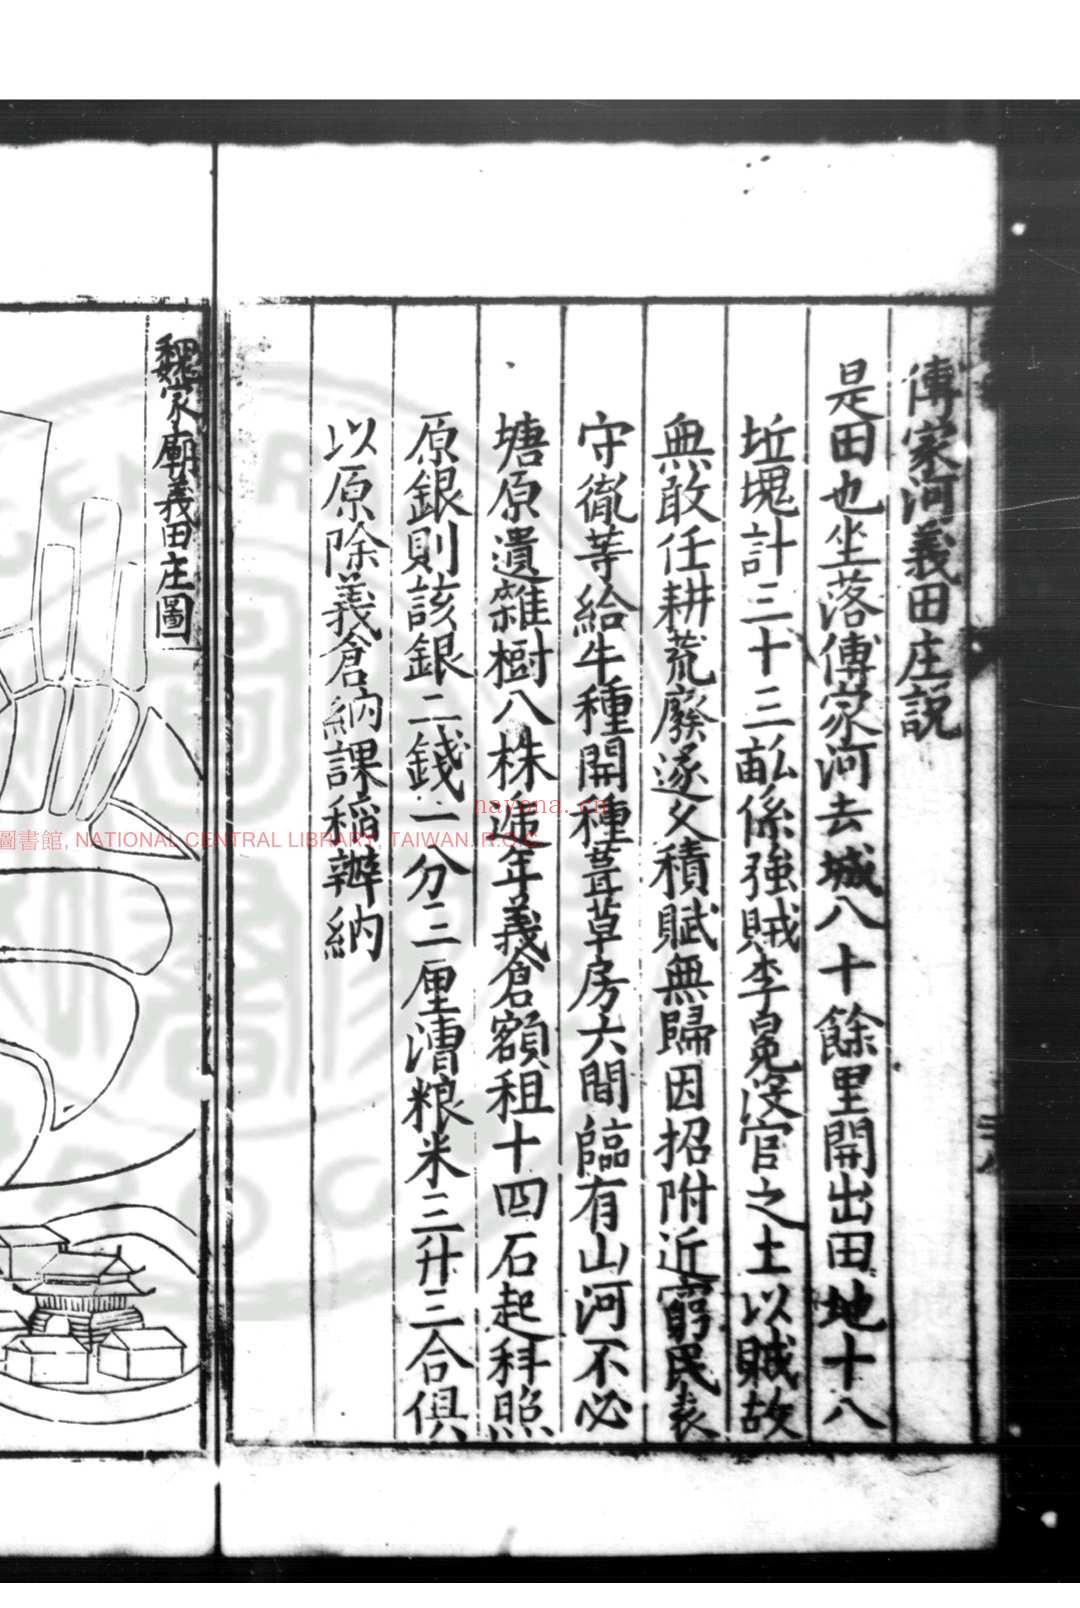 傅家河義田庄説
是田也坐落傅家河去城八十餘里開出田地十八
坵塊計三十三畝係強賊李晃没官之土以賊故
無敢任耕荒廢逐久積賦無歸因招附近窮民袁
守徹等給牛種開種葺草房六間臨有山河不必
塘原遺雜樹八株遞年義倉額租十四石起科照
原銀則該銀二錢一分二厘漕粮米三升三合俱
以原除義倉納課稻辦納
魏家廟義田庄圖
圖書館, NATIONAL CENTRAL LIBRARY, TAIWAN R.O.C.
nayona.cn